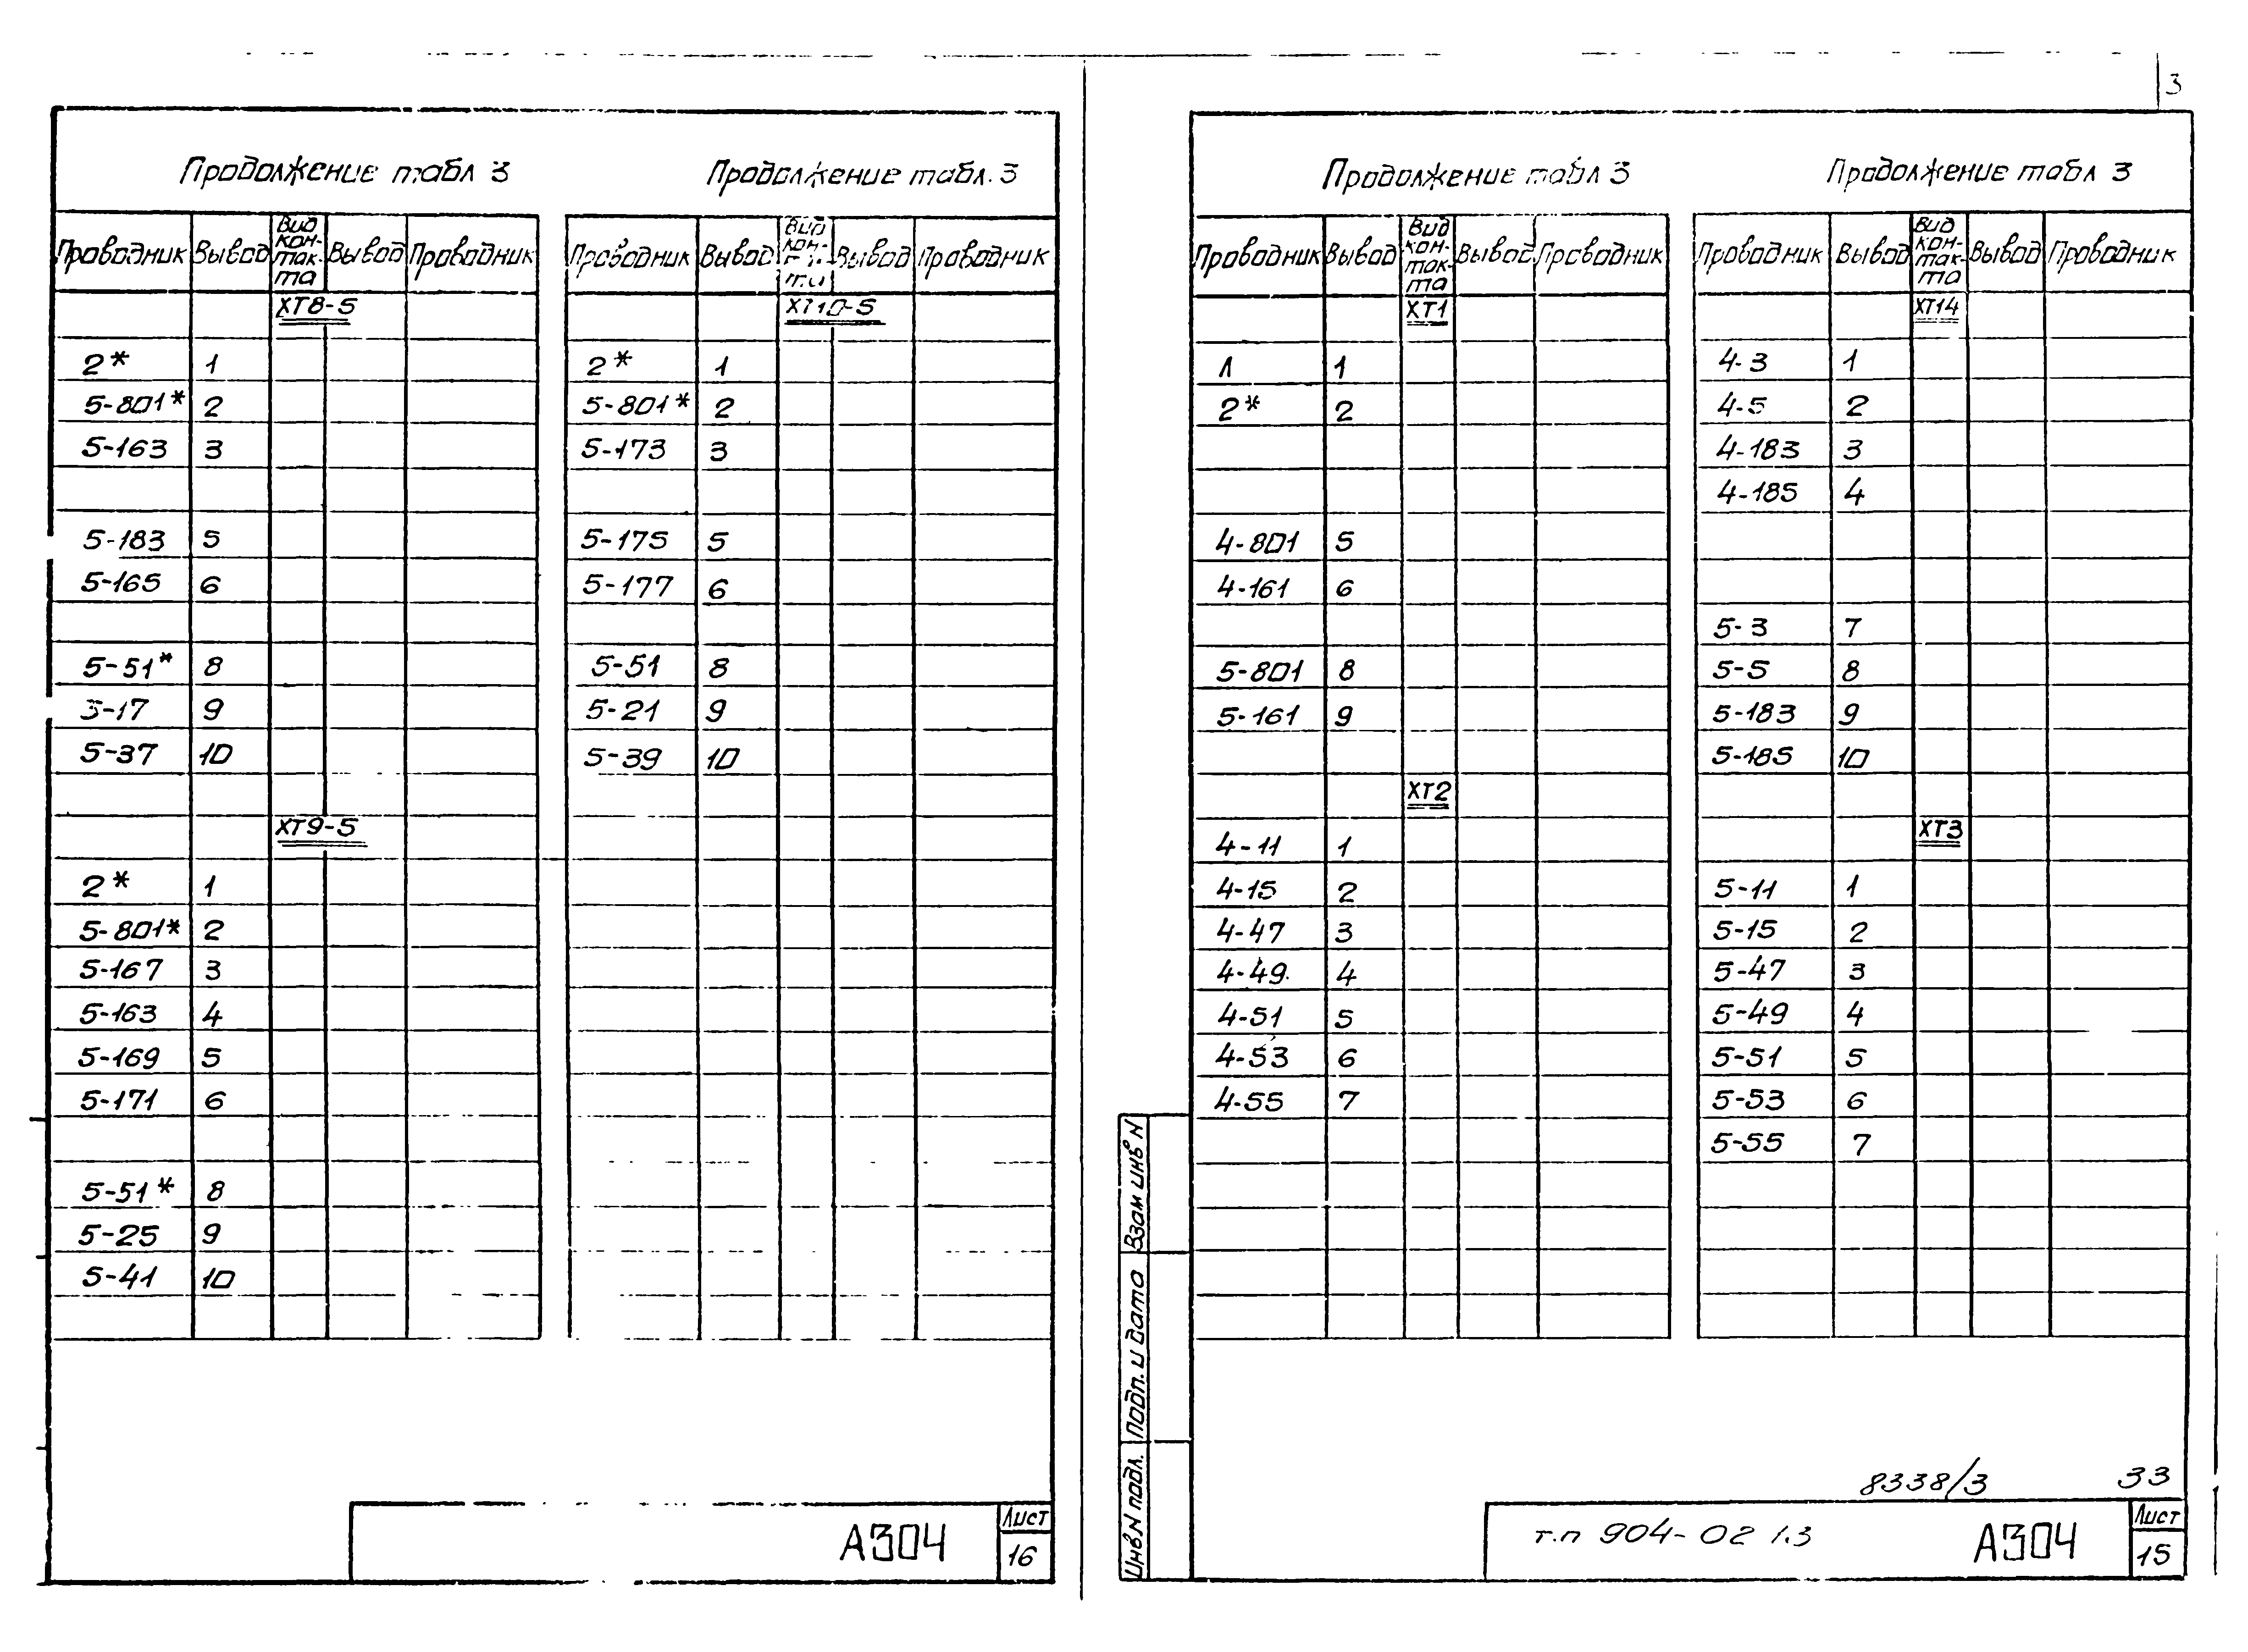 3
Продолжение табл 3
Проводник Вывод Вид кон-так-та Вывод Проводник
ХТ8-5
2* 1
5-801* 2
5-163 3
5-183 5
5-165 6
5-51* 8
5-17 9
5-37 10
ХТ9-5
2* 1
5-801* 2
5-167 3
5-163 4
5-169 5
5-171 6
5-51* 8
5-25 9
5-41 10
Продолжение табл. 3
Проводник Вывод Вид кон- та Вывод Проводник
ХТ10-5
2* 1
5-801* 2
5-173 3
5-175 5
5-177 6
5-51 8
5-21 9
5-39 10
А304
Лист
16
Продолжение табл 3
Проводник Вывод Вид кон-так-та Вывод Проводник
ХТ1
Л 1
2* 2
4-801 5
4-161 6
5-801 8
5-161 9
ХТ2
4-11 1
4-15 2
4-47 3
4-49 4
4-51 5
4-53 6
4-55 7
Продолжение табл 3
Проводник Вывод Вид кон-так-та Вывод Проводник
ХТ14
4-3 1
4-5 2
4-183 3
4-185 4
5-3 7
5-5 8
5-183 9
5-185 10
ХТ3
5-11 1
5-15 2
5-47 3
5-49 4
5-51 5
5-53 6
5-55 7
Взам инв N
Подп. и дата
Инв.N подл.
8338/3 33
т.п 904-02 1.3 А304
Лист
15